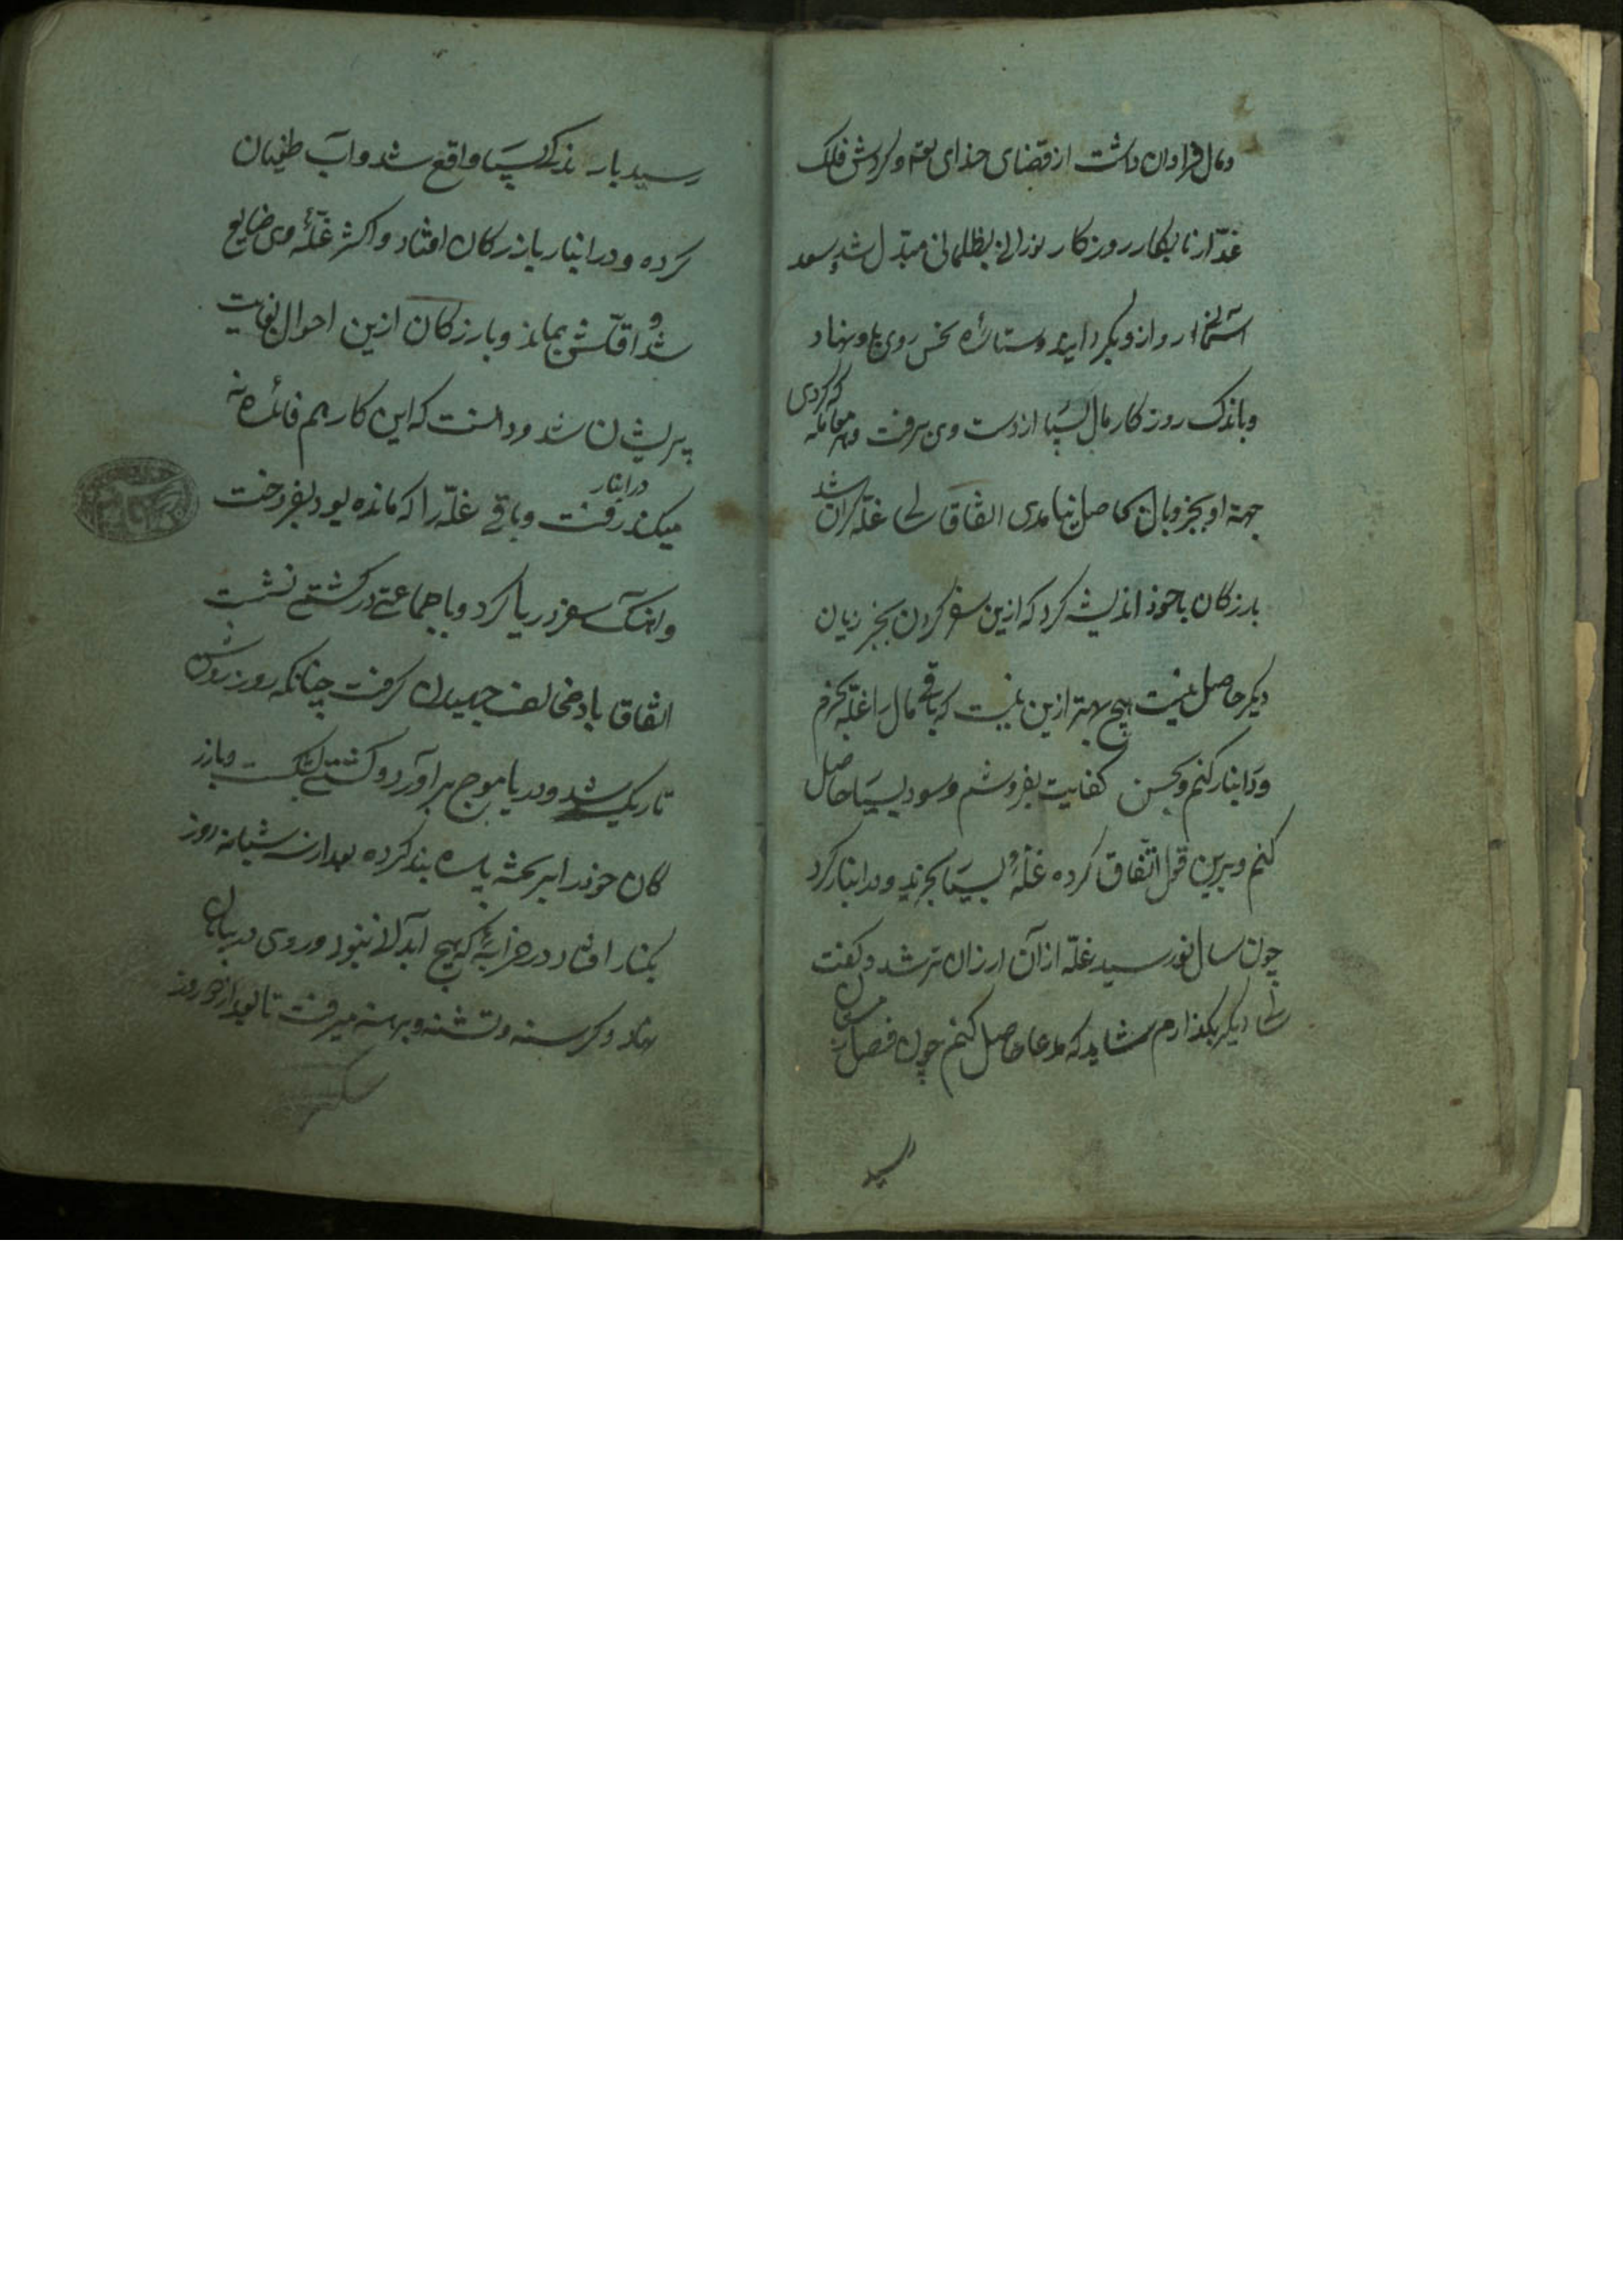 ومال فراوان داشت از قضای خدای تعم و کردش فلک
غدّار نابکار روزکار نورانی بظلمانی مبدّل شد سعد
آسمانی رو ازو بکردانید و ستارهٔ نحس روی باو نهاد
و باندک روزکار مال بسیا از دست وی برفت و هر معامله که کردی
جهة او بجز وبال حاصل نیامدی اتفاقا سالی غلّه کران شد
بازرکان با خود اندیشه کرد که ازین سفر کردن بجز زیان
دیکر حاصل نیست هیچ بهتر ازین نیست که باقی مال را غلّه بخرم
و در انبار کنم و بحسن کفایت بفروشم و سود بسیا حاصل
کنم و برین قول اتّفاق کرده غلّهٔ بسیا بخرید و در انبار کرد
چون سال نو رسید غلّه از آن ارزان تر شد و کفت
سالی دیکر بکذارم شاید که مدعا حاصل کنم چون فصل
رسید
رسید بارندکی بسیا واقع شد و آب طغیان
کرده و در انبار بازرکان افتاد و اکثر غلّهٔ وی ضایع
شد و اقلّش بماند و بازرکان ازین احوال بغایت
پریشان شد و دانست که این کار هم فائده نه
میکند رفت و باقی غلّه را که در انبار مانده بود بفروخت
و آهنک سفر دریا کرد و با جماعتی در کشتی نشست
اتفاقا باد مخالف جهیدن کرفت چنانکه روز روشن
تاریک شد و دریا موج برآورد و کشتی بشکست و بازر
کان خود را بر تخته پاره بند کرده بعد از سه شبانه روز
بکنار افتاد در خرابهٔ که هیچ آبدانی نبود و روی در بیابان
نهاد و کرسنه و تشنه و برهنه میرفت تا بعد از دو روز